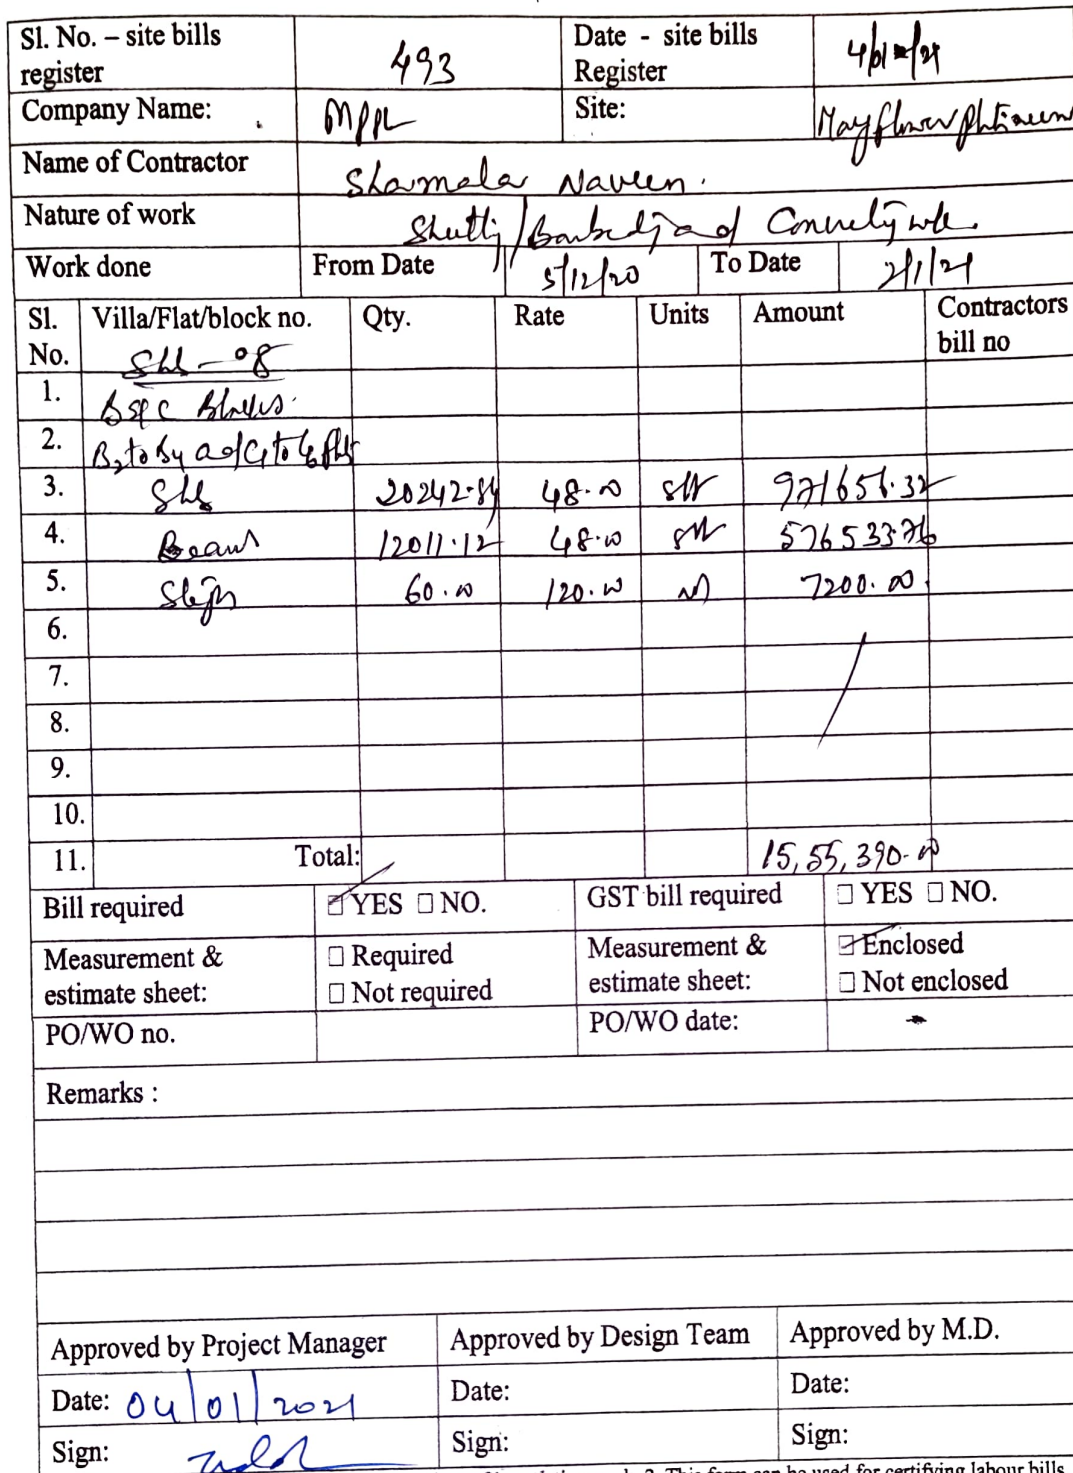 Sl. No. – site bills register 493 Date - site bills Register
Company Name: MPPL Site: Mayflower
Name of Contractor Shamala Naveen.
Nature of work
Work done From Date 5/12/20 To Date 2/1/21
Sl. No. Villa/Flat/block no. Qty. Rate Units Amount Contractors bill no
1.
2.
3. 20242.84 48.00 971656.32
4. Beams 12011.12 48.00 576533.76
5. 60.00 120.00 7200.00
6.
7.
8.
9.
10.
11. Total: 15,55,390.00
Bill required ☑ YES ☐ NO. GST bill required ☐ YES ☐ NO.
Measurement & estimate sheet: ☐ Required ☐ Not required Measurement & estimate sheet: ☑ Enclosed ☐ Not enclosed
PO/WO no. PO/WO date:
Remarks :
Approved by Project Manager Approved by Design Team Approved by M.D.
Date: 04/01/2021 Date: Date:
Sign: Sign: Sign:
This form can be used for certifying labour bills